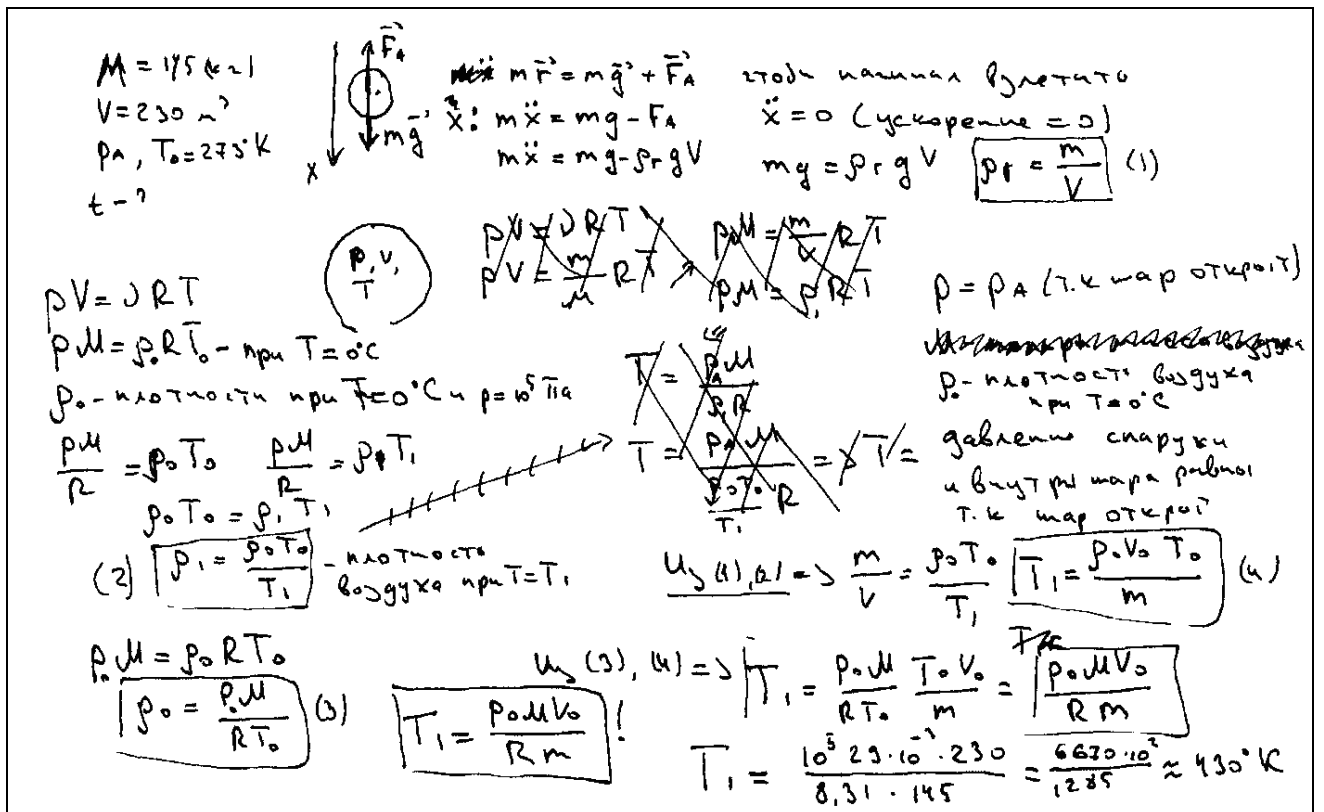 M = 145 (кг)
V = 230 м³
p_A, T₀ = 273°K
t - ?
F⃗_A
mg⃗
x
m r̈⃗ = mg⃗ + F⃗_A
ẍ: mẍ = mg - F_A
mẍ = mg - ρ_г g V
чтобы начинал взлетать
ẍ = 0 (ускорение = 0)
mg = ρ_г g V ρ_г = m/V (1)
p, V, T
pV = νRT
pV = m/M RT
pM = m/V RT
pM = ρ₁RT
p = p_A (т.к шар открыт)
pV = νRT
pM = ρ₀RT₀ - при T = 0°C
ρ₀ - плотности при T = 0°C и p = 10⁵ Па
pM/R = ρ₀T₀ pM/R = ρ₁T₁
ρ₀T₀ = ρ₁T₁
(2) ρ₁ = ρ₀T₀/T₁ - плотность воздуха при T = T₁
T = p_A M/ρ₁R
T = p_A M/(ρ₀T₀/T₁ R) => T =
ρ₀ - плотность воздуха
при T = 0°C
давление снаружи
и внутри шара равны
т.к шар открыт
Из (1), (2) => m/V = ρ₀T₀/T₁ T₁ = ρ₀V₀T₀/m (4)
p₀M = ρ₀RT₀
ρ₀ = p₀M/RT₀ (3)
T₁ = p₀MV₀/Rm !
Из (3), (4) => T₁ = p₀M/RT₀ T₀V₀/m = p₀MV₀/Rm
T₁ = 10⁵ 29·10⁻³·230/8,31·145 = 6670·10²/1205 ≈ 430°K